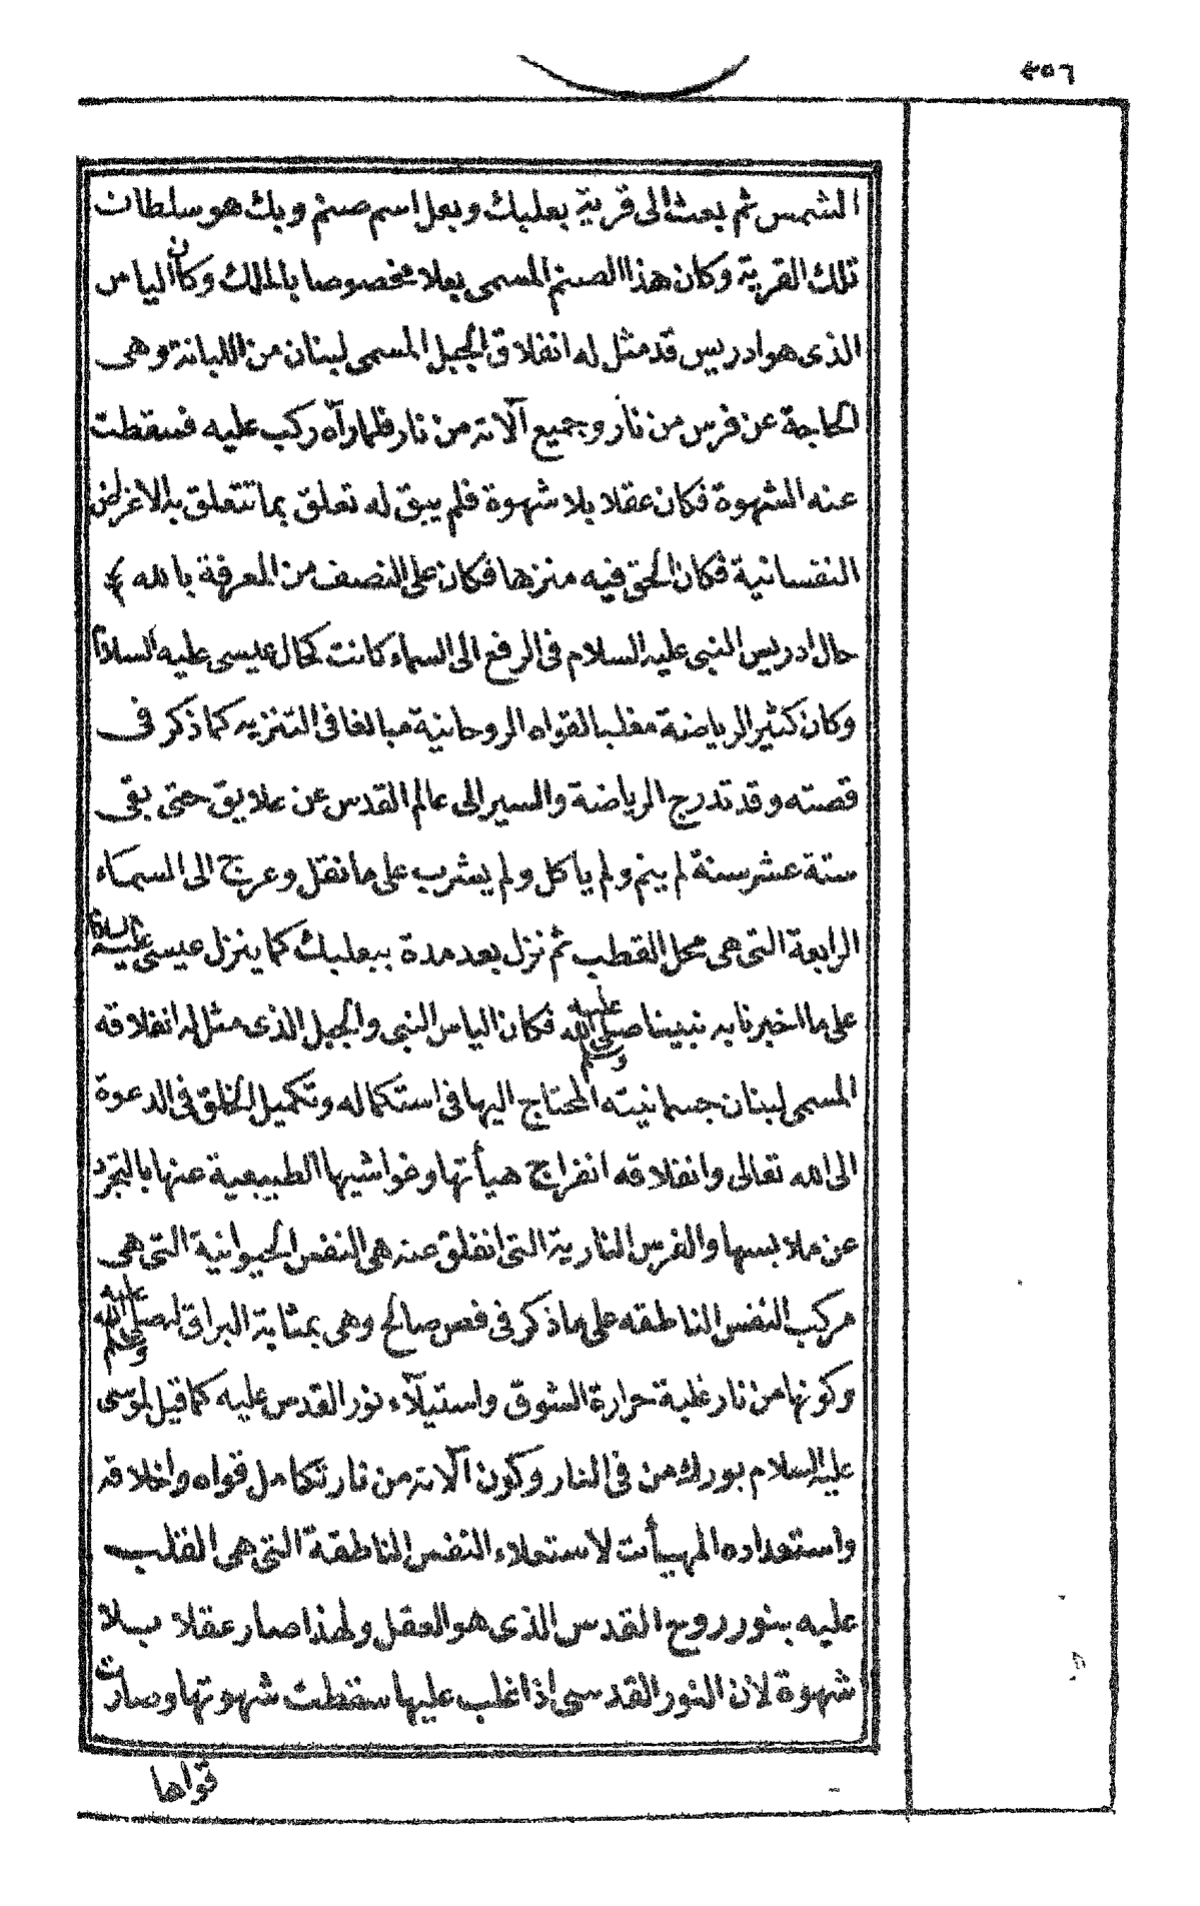 ٤٥٦
الشمس ثم بعث الى قرية بعلبك وبعل اسم صنم وبك هو سلطان
تلك القرية وكان هذا الصنم المسمى بعلا مخصوصا بالملك وكان الياس
الذى هو ادريس قد مثل له انفلاق الجبل المسمى لبنان من اللبانة وهى
الحاجة عن فرس من نار وجميع آلاته من نار فلما رآه ركب عليه فسقطت
عنه الشهوة فكان عقلا بلا شهوة فلم يبق له تعلق بما تتعلق به الاغراض
النفسانية فكان الحق فيه منزها فكان على النصف من المعرفة بالله
حال ادريس النبى عليه السلام فى الرفع الى السماء كانت كحال عيسى عليه السلام
وكان كثير الرياضة مغلبا لقواه الروحانية مبالغا فى التنزيه كما ذكر فى
قصته وقد تدرج الرياضة والمسير الى عالم القدس عن علايق حتى بقى
ستة عشر سنة لم ينم ولم ياكل ولم يشرب على ما نقل وعرج الى السماء
الرابعة التى هى محل القطب ثم نزل بعد مدة ببعلبك كما ينزل عيسى عليه السلام
على ما اخبرنا به نبينا صلى الله عليه وسلم فكان الياس النبى والجبل الذى مثل له انفلاقه
المسمى لبنان جسمانيته المحتاج اليها فى استكماله وتكميل الخلق فى الدعوة
الى الله تعالى وانفلاقه انفراج هيأتها وغواشيها الطبيعية عنها بالتجرد
عن ملابسها والفرس النارية التى انفلق عنه هى النفس الحيوانية التى هى
مركب النفس الناطقه على ما ذكر فى فص صالح وهى بمثابة البراق له صلى الله عليه وسلم
وكونها من نار غلبة حرارة الشوق واستيلآء نور القدس عليه كما قيل لموسى
عليه السلام بورك من فى النار وكون آلاته من نار تكامل قواه واخلاقه
واستعداده المهيأت لاستعلاء النفس الناطقة التى هى القلب
عليه بنور روح القدس الذى هو العقل ولهذا صار عقلا بلا
شهوة لان النور القدسى اذا غلب عليها سقطت شهوتها وصارت
قواها